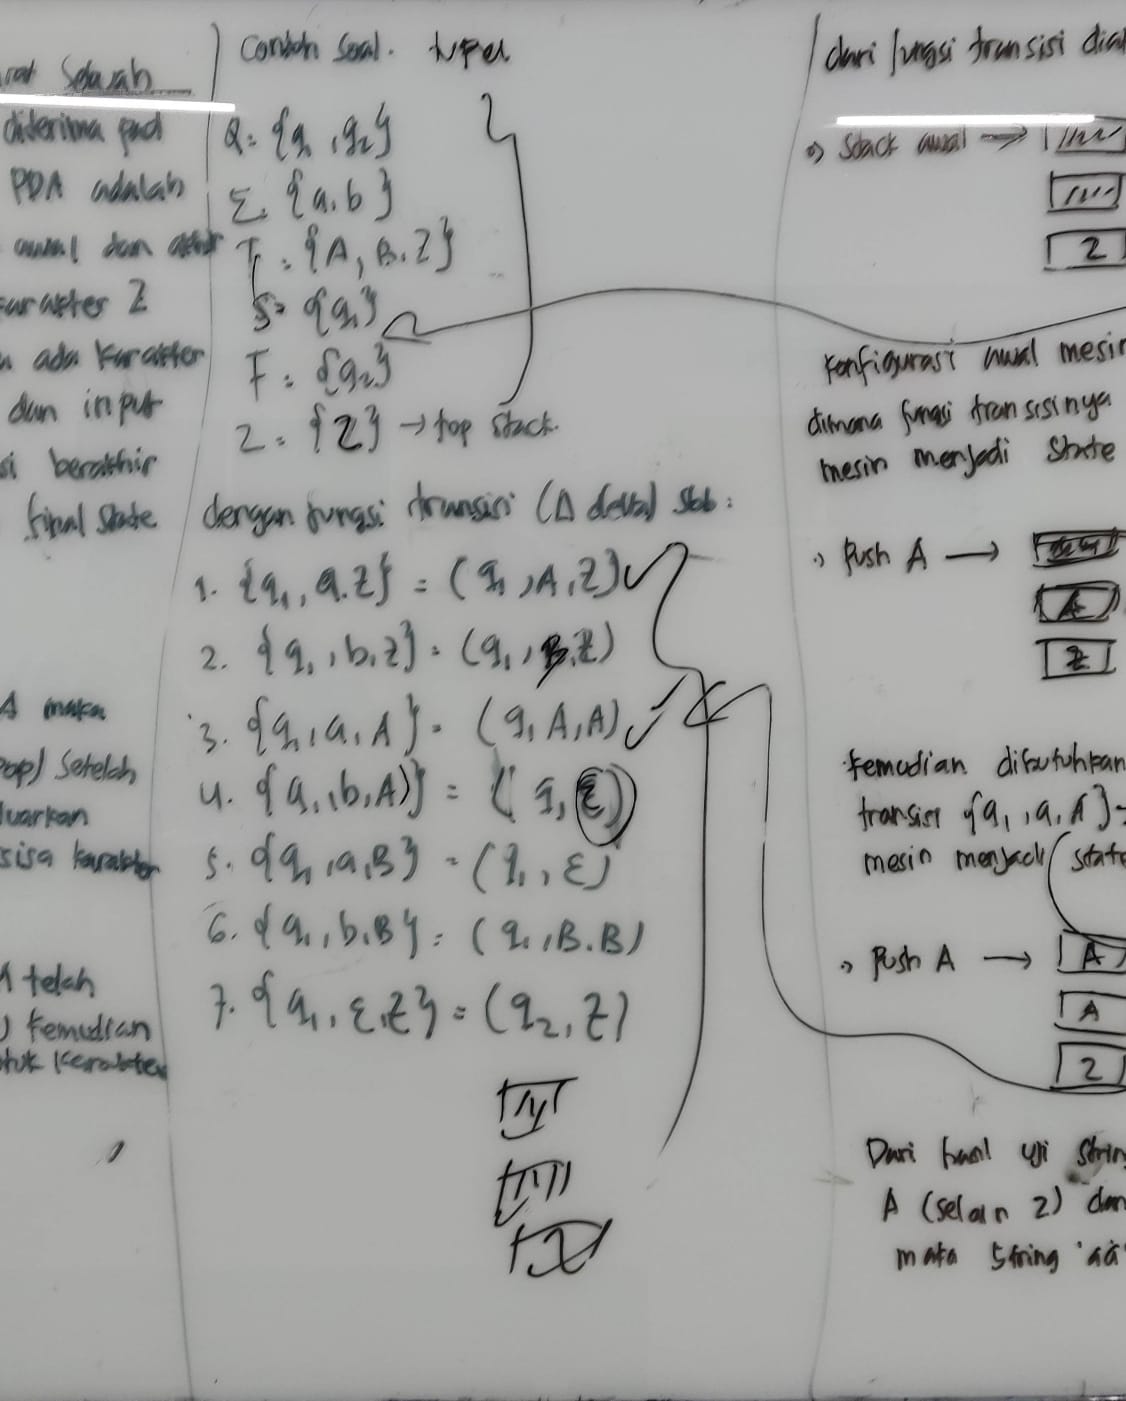 Sebuah
diterima pad
PDA adalah
awal dan akhir
karakter Z
ada karakter
dan input
si berakhir
final state
A maka
pop) setelah
luarkan
sisa karakter
A telah
) kemudian
tuk karakter
Contoh soal. tupel
Q = {q1, q2}
Σ = {a, b}
T = {A, B, Z}
S = {q1}
F = {q2}
Z = {Z} → top stack.
dengan fungsi transisi (Δ delta) sbb :
1. {q1, a, Z} = (q1, A, Z)
2. {q1, b, z} = (q1, B, Z)
3. {q1, a, A} = (q1 A, A)
4. {q1, b, A)} = (q, ε)
5. {q1, a, B} = (q1, ε)
6. {q1, b, B} = (q1, B.B)
7. {q1, ε, Z} = (q2, Z)
dari fungsi transisi dia
Stack awal →
Z
Konfigurasi awal mesin
dimana fungsi transisinya
mesin menjadi state
Push A →
A
Z
kemudian dibutuhkan
transisi {q1, a, A} =
mesin menjadi state
Push A →
A
A
Z
Dari hasil uji strin
A (selain Z) dan
maka string 'aa'